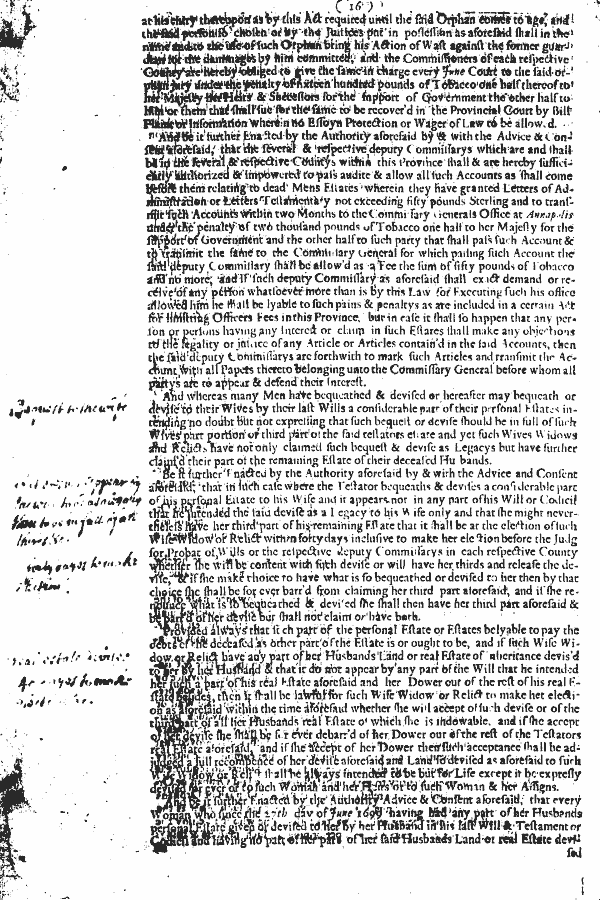 ( 16 )
at his entry thereupon as by this Act required until the said Orphan comes to age, and
the said person so chosen or by the Justices put in possession as aforesaid shall in the
name and to the use of such Orphan bring his Action of Wast against the former guar-
dian for the dammages by him committed, and the Commissioners of each respective
County are hereby obliged to give the same in charge every June Court to the said or-
phan jury under the penalty of sixteen hundred pounds of Tobacco one half thereof to
her Majesty her Heirs & Successors for the support of Government the other half to
him or them that shall sue for the same to be recover'd in the Provincial Court by Bill
Plaint or Information wherein no Essoyn Protection or Wager of Law to be allow,d.
And be it further Enacted by the Authority aforesaid by & with the Advice & Con-
sent aforesaid, that the several & respective deputy Commissarys which are and shall
be in the several & respective Countys within this Province shall & are hereby suffici-
ently authorized & impowered to pass audite & allow all such Accounts as shall come
before them relating to dead Mens Estates wherein they have granted Letters of Ad-
ministration or Letters Testamentary not exceeding fifty pounds Sterling and to transf-
mit such Accounts within two Months to the Commissary Generals Office at Annapolis
under the penalty of two thousand pounds of Tobacco one half to her Majesty for the
support of Government and the other half to such party that shall pass such Account &
to transmit the same to the Commissary General for which passing such Account the
said deputy Commissary shall be allow'd as a Fee the sum of fifty pounds of Tobacco
and no more, and if such deputy Commissary as aforesaid shall exact demand or re-
ceive of any person whatsoever more than is by this Law for Executing such his office
allowed him he shall be lyable to such pains & penaltys as are included in a certain Act
for limiting Officers Fees in this Province, but in case it shall so happen that any per-
son or persons having any Interest or claim in such Estates shall make any objections
to the legality or justice of any Article or Articles contain'd in the said Accounts, then
the said deputy Commissarys are forthwith to mark such Articles and transmit the Ac-
count with all Papers thereto belonging unto the Commissary General before whom all
partys are to appear & defend their Interest.
And whereas many Men have bequeathed & devised or hereafter may bequeath or
devise to their Wives by their last Wills a considerable part of their personal Estates in-
tending no doubt but not expressing that such bequest or devise should be in full of such
Wives part portion or third part of the said testators estate and yet such Wives Widows
and Relicts have not only claimed such bequest & devise as Legacys but have further
claim'd their part of the remaining Estate of their deceased Husbands.
Be it further Enacted by the Authority aforesaid by & with the Advice and Consent
aforesaid, that in such case where the Testator bequeaths & devises a considerable part
of his personal Estate to his Wife and it appears not in any part of his Will or Codicil
that he intended the said devise as a Legacy to his Wife only and that she might never-
theless have her third part of his remaining Estate that it shall be at the election of such
Wife Widow or Relict within forty days inclusive to make her election before the Judg
for Probat of Wills or the respective deputy Commissarys in each respective County
whether she will be content with such devise or will have her thirds and release the de-
vise, & if she make choice to have what is so bequeathed or devised to her then by that
choice she shall be for ever barr'd from claiming her third part aforesaid, and if she re-
nounce what is so bequeathed & devised she shall then have her third part aforesaid &
be barr'd of her devise but shall not claim or have both.
Provided always that such part of the personal Estate or Estates be lyable to pay the
debts of the deceased as other part of the Estate is or ought to be, and if such Wife Wi-
dow or Relict have any part of her Husbands Land or real Estate of inheritance devis'd
to her by her Husband & that it do not appear by any part of the Will that he intended
her such a part of his real Estate aforesaid and her Dower out of the rest of his real E-
state besides, then it shall be lawful for such Wife Widow or Relict to make her electi-
on as aforesaid within the time aforesaid whether she will accept of such devise or of the
third part of all her Husbands real Estate of which she is indowable, and if she accept
of her devise she shall be for ever debarr'd of her Dower out of the rest of the Testators
real Estate aforesaid, and if she accept of her Dower then such acceptance shall be ad-
judged a full recompence of her devise aforesaid and Land so devised as aforesaid to such
Wife Widow or Relict shall be always intended to be but for Life except it be expresly
devised for ever or to such Woman and her Heirs or to such Woman & her Assigns.
And be it further Enacted by the Authority Advice & Consent aforesaid, that every
Woman who since the 27th day of June 1699 having had any part of her Husbands
personal Estate given or devised to her by her Husband in his last Will & Testament or
Codicil and having no part of her said Husbands Land or real Estate devi-
sed